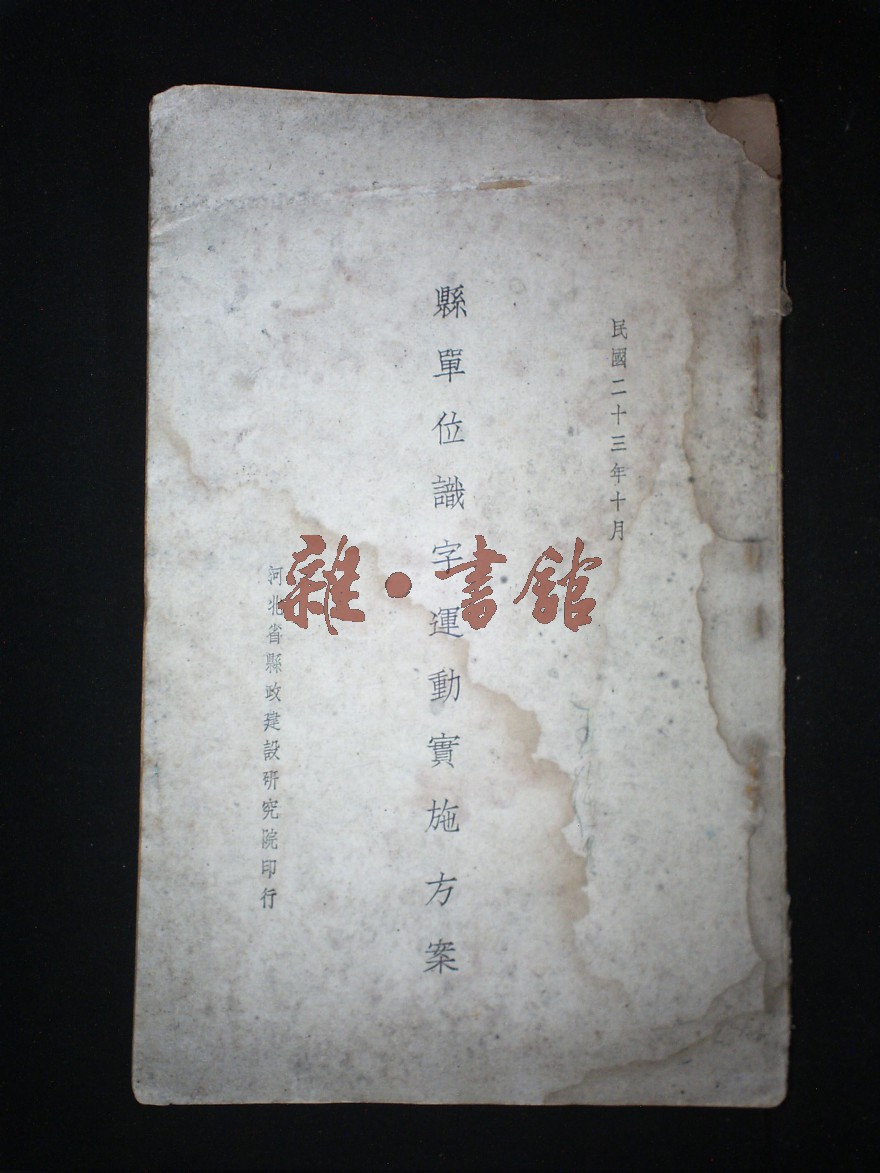 民國二十三年十月
縣單位識字運動實施方案
河北省縣政建設研究院印行
雜·書館